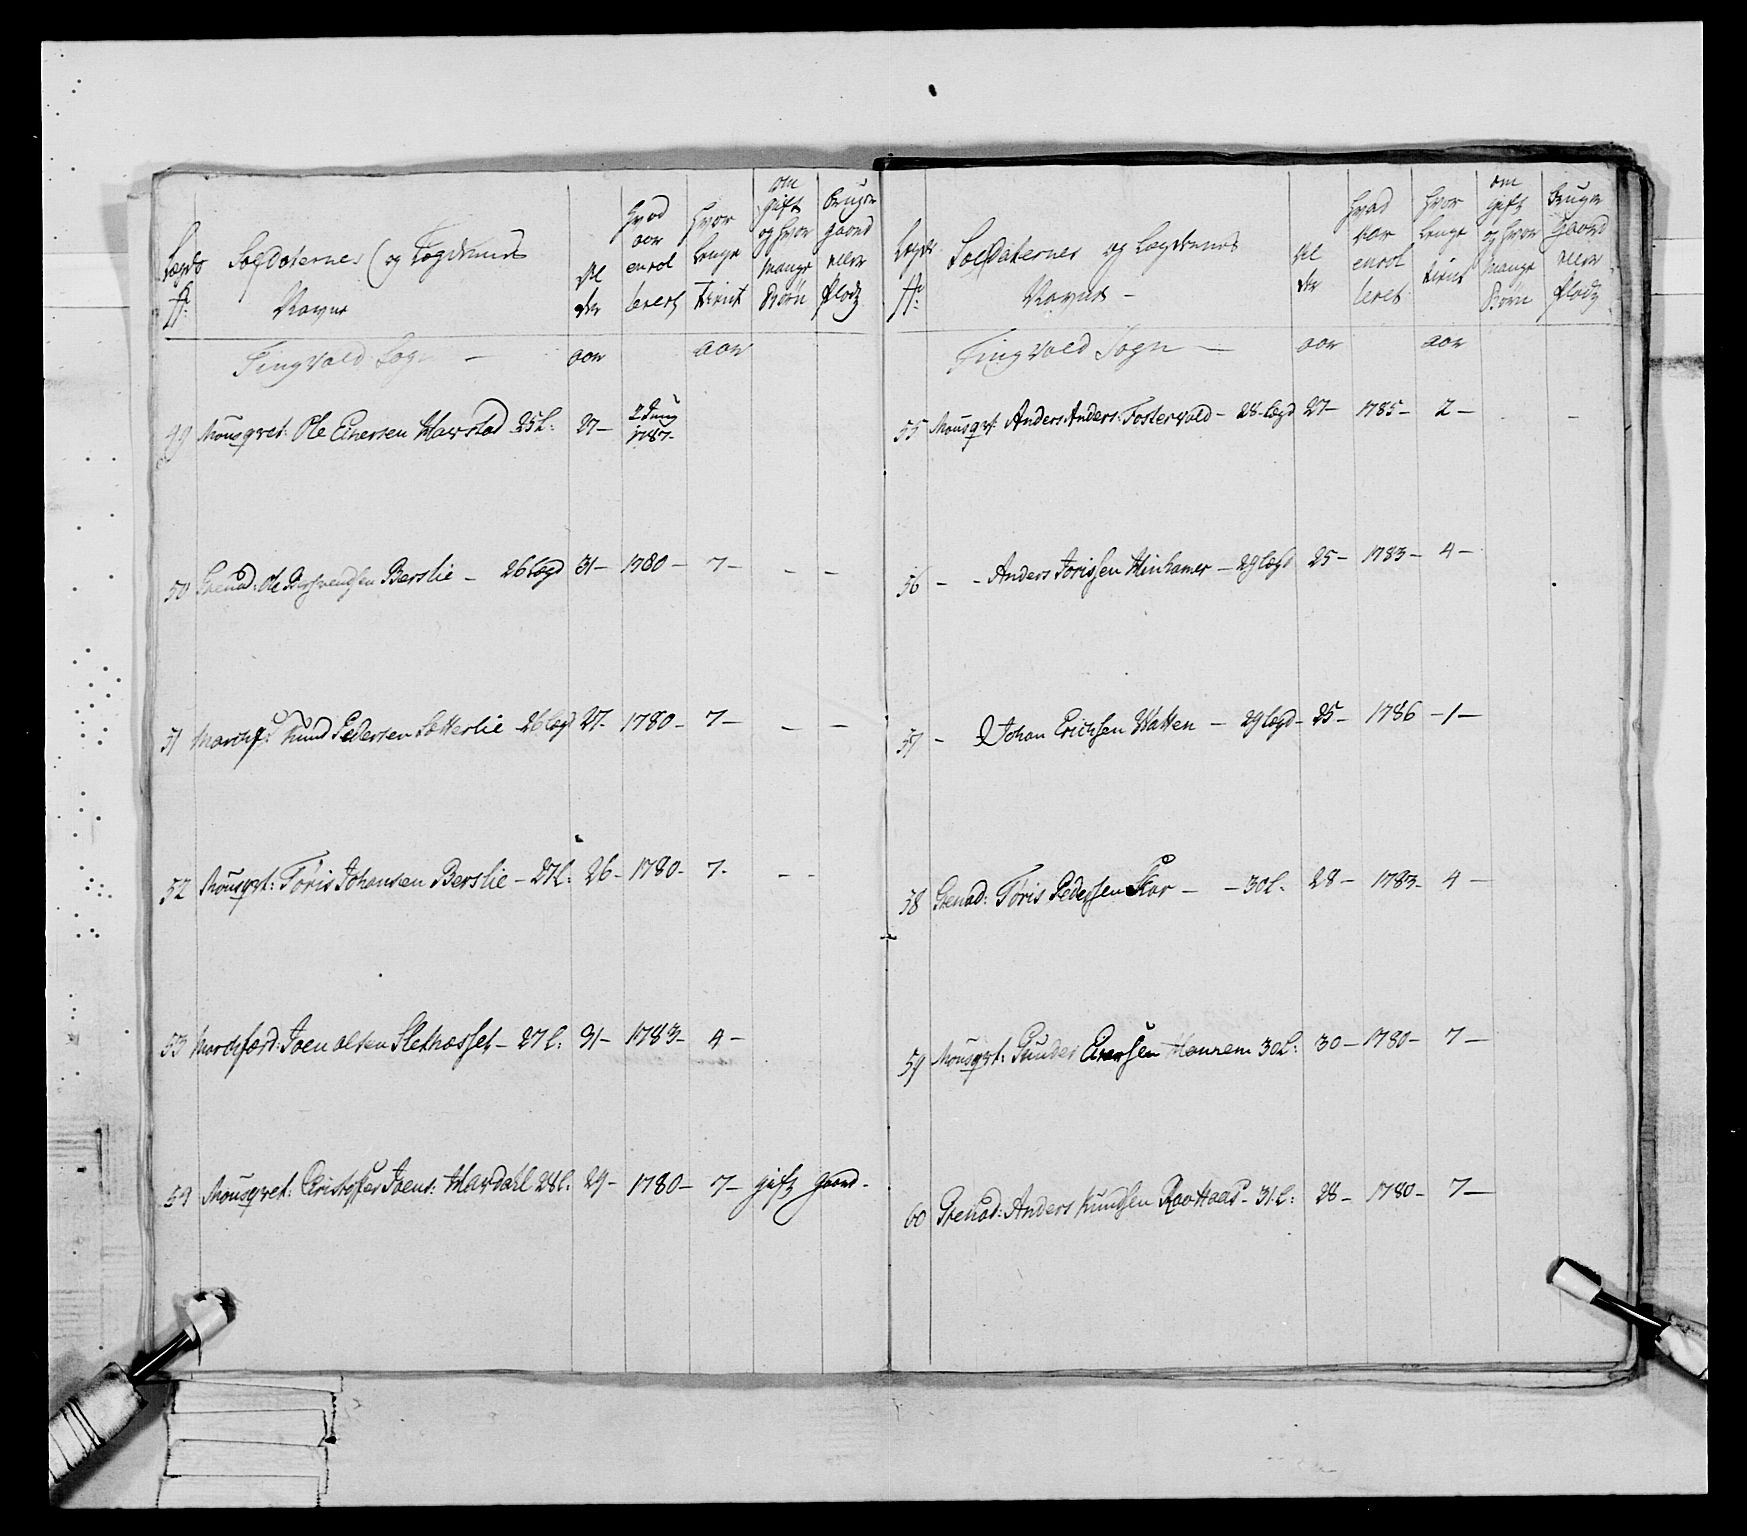 Lægds
No:
Soldaternes og Lægdernes
Navne
Al
der
hvad
aar
enrol
leret
hvor
lenge
tient
om
gift
og hvor
mange
Børn
Bruger
gaard
eller
pladz
Tingvold Sogn —
aar
aar
49 Mousqvet: Ole Einersen Harstad 25 L: 27 — 2 Juny 1787 —
50 Grenad: Ole Berslie — 26 Lægd 31 — 1780 — 7 — — —
51 Knud Pedersen Sætterlie — 26 Lægd 27 — 1780 — 7 — — —
52 Mousqvet: Tøris Johansen Berslie — 27 L: 26 — 1780 — 7 — — —
53 Joen Olsen — 27 L: 31 — 1783 — 4 —
54 Mousqvet: Christopher Joens: Hardahl 28 L: 29 — 1780 — 7 — gift gaard —
Lægds
No:
Soldaternes og Lægdernes
Navne —
Al
der
hvad
aar
enrol
leret
hvor
lenge
tient
om
gift
og hvor
mange
Børn
Bruger
Gaard
eller
pladz
Tingvold Sogn —
aar
aar
55 Mousqvt: Anders Anders: Fostervold — 28 Lægd 27 — 1785 — 2 — — —
56 — — Anders Jorissen Minhamer — 29 Lægd 25 — 1783 — 4 —
57 — Johan Erichsen Watten — 29 Lægd — 25 — 1786 — 1 —
58 Grenad: Tøris Pedersen Skar — — 30 L: 28 — 1783 — 4 —
59 Mousqvet: Gunder Einersen 30 L: 30 — 1780 — 7 —
60 Grenad: Anders Knudsen — 31 L: 28 — 1780 — 7 —